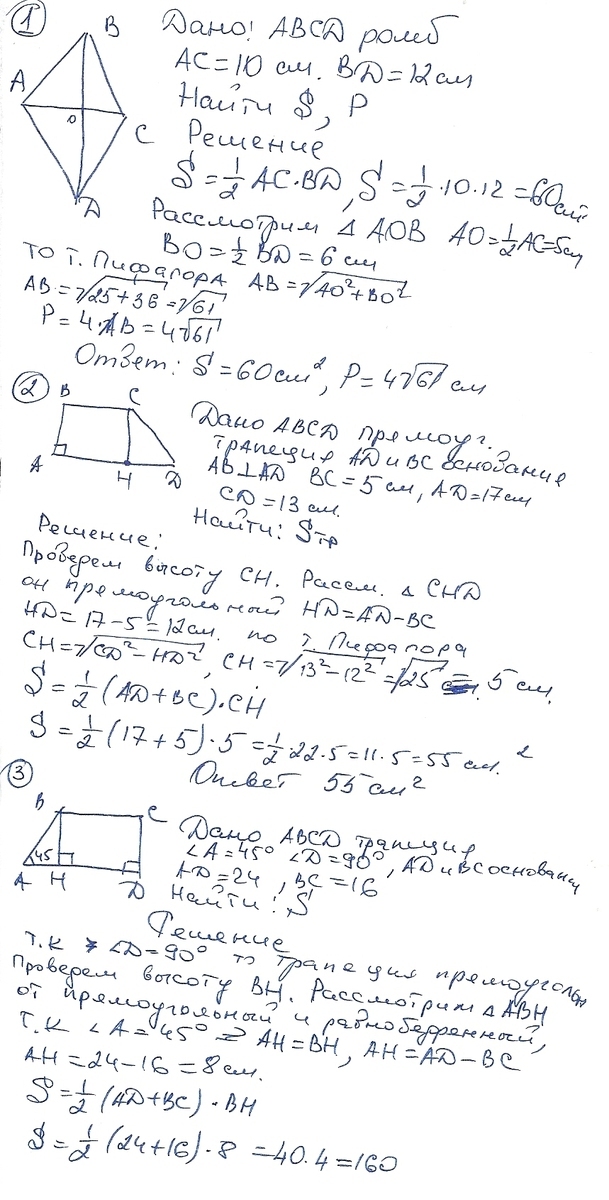 1
B
A
O
C
D
Дано: ABCD ромб
AC=10 см. BD=12см
Найти S, P
Решение
S=1/2 AC·BD, S=1/2·10·12=60см²
Рассмотрим Δ AOB AO=1/2AC=5см
BO=1/2 BD=6 см
то т. Пифагора AB=√AO²+BO²
AB=√25+36=√61
P=4·AB=4√61
Ответ: S=60см², P=4√61 см
2
B
C
A
H
D
Дано ABCD прямоуг.
трапеция AD и BC основание
AB⊥AD BC=5см, AD=17см
CD=13 см.
Найти: Sтр
Решение:
Проведем высоту CH. Рассм. Δ CHD
он прямоугольный HD=AD-BC
HD=17-5=12см. по т Пифагора
CH=√CD²-HD², CH=√13²-12²=√25=5 см.
S=1/2(AD+BC)·CH
S=1/2(17+5)·5=1/2·22·5=11·5=55см.²
Ответ 55см²
3
B
C
45
A
H
D
Дано ABCD трапеция
∠A=45° ∠D=90°, AD и BC основани
AD=24, BC=16
Найти: S
Решение
Т.к ∠D=90° то трапеция прямоуголь
Проведем высоту BH. Рассмотрим Δ ABH
от прямоугольный и равнобедренный,
Т.к ∠A=45° ⇒ AH=BH, AH=AD-BC
AH=24-16=8см.
S=1/2(AD+BC)·BH
S=1/2(24+16)·8=40·4=160